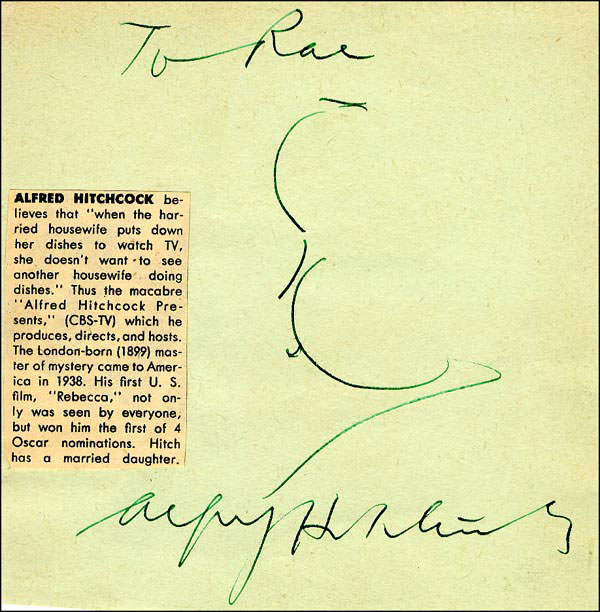 To Rae
ALFRED HITCHCOCK be-
lieves that "when the har-
ried housewife puts down
her dishes to watch TV,
she doesn't want to see
another housewife doing
dishes." Thus the macabre
"Alfred Hitchcock Pre-
sents," (CBS-TV) which he
produces, directs, and hosts.
The London-born (1899) mas-
ter of mystery came to Amer-
ica in 1938. His first U. S.
film, "Rebecca," not on-
ly was seen by everyone,
but won him the first of 4
Oscar nominations. Hitch
has a married daughter.
Alfred Hitchcock